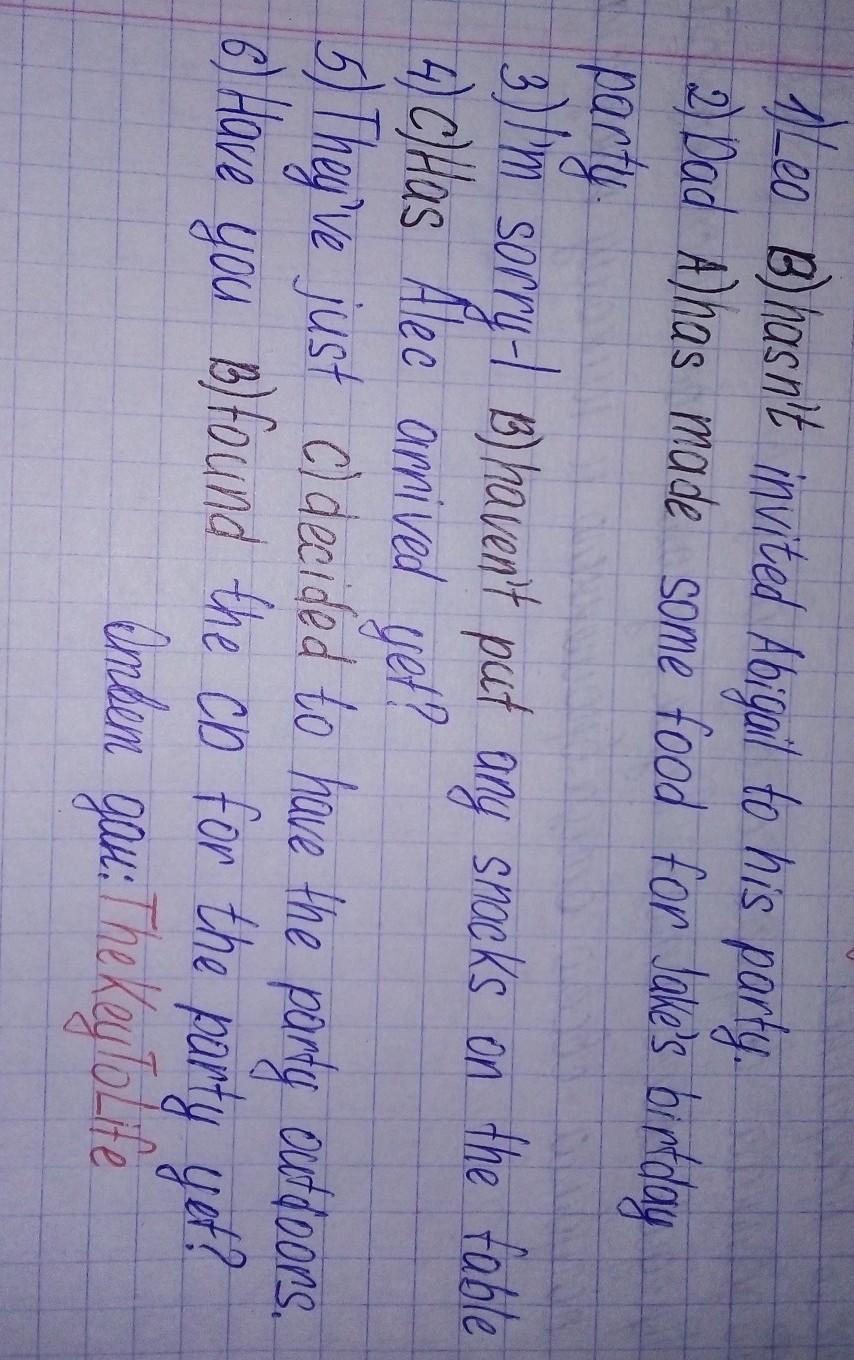 1)Leo B)hasn't invited Abigail to his party.
2)Dad A)has made some food for Jake's birtday
party.
3)I'm sorry-I B)haven't put any snacks on the table
4)C)Has Alec arrived yet?
5)They've just C)decided to have the party outdoors.
6)Have you B)found the CD for the party yet?
Ответ дан: TheKeyToLife